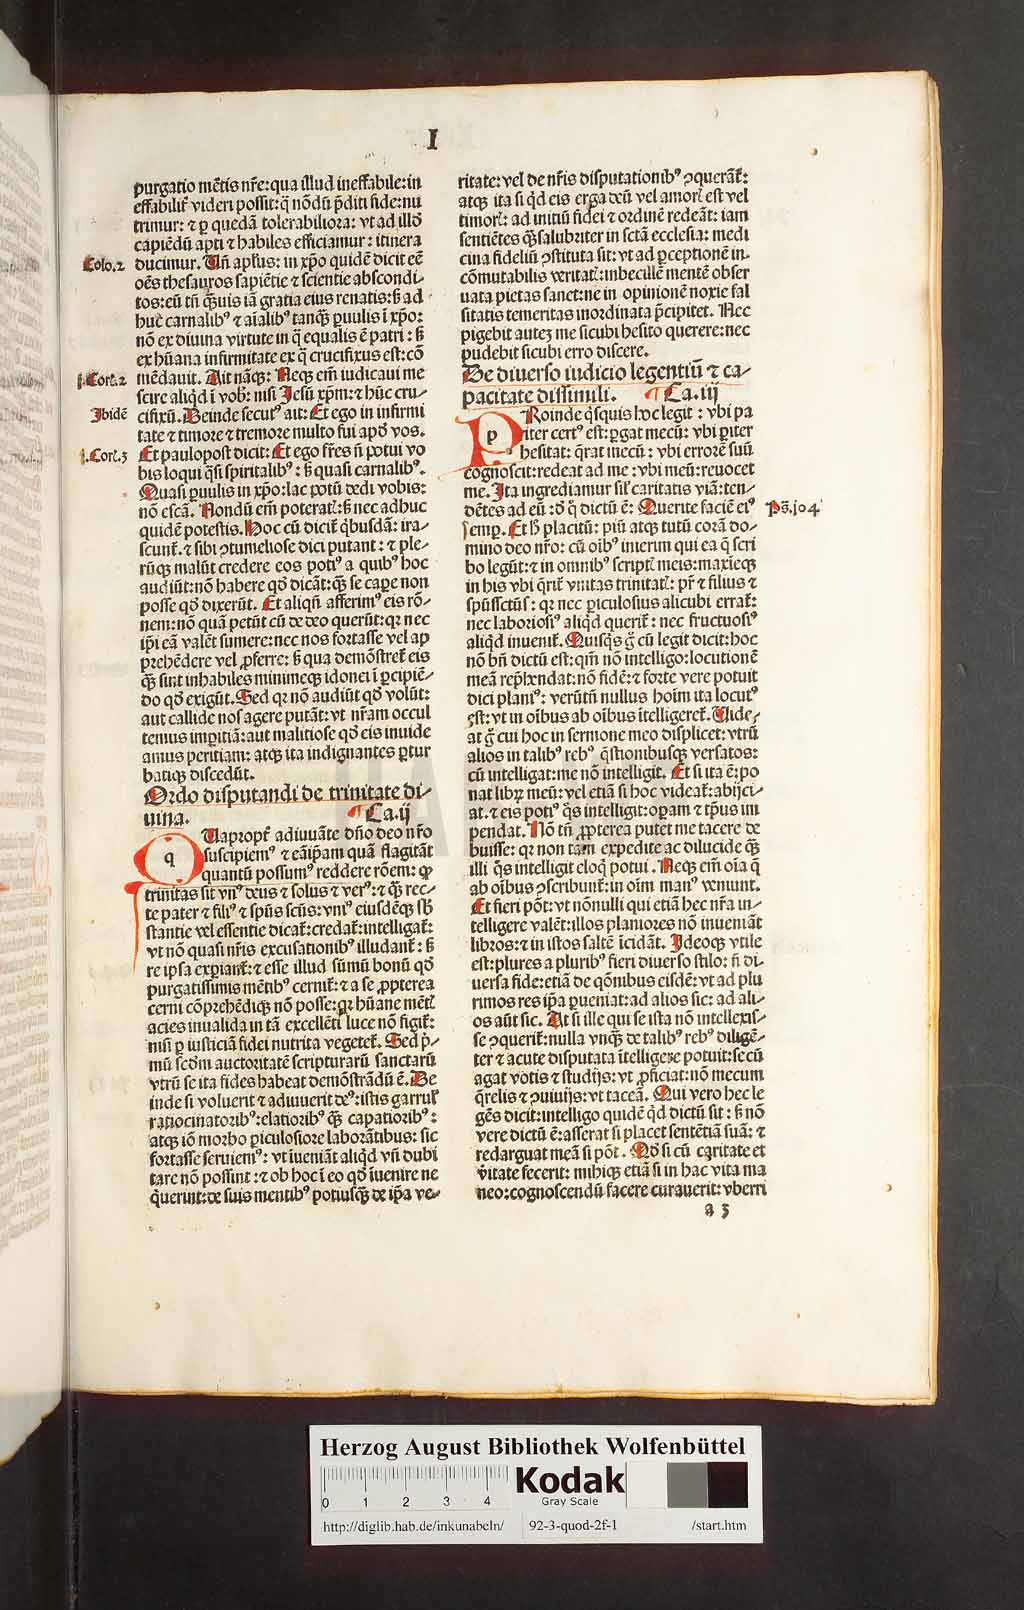 I
purgatio mētis nr̄e: qua illud ineffabile: in
effabilit̄ videri possit: q̄ nōdū p̄diti fide: nu
trimur: ⁊ ꝑ quedā tolerabiliora: vt ad illō
capiēdū apti ⁊ habiles efficiamur: itinera
Colo.2
ducimur. Vn̄ apl̄us: in xp̄o quidē dicit eē
oēs thesauros sapiētie ⁊ scientie abscondi
tos: eū tn̄ q̄uis iā gratia eius renatis: ß ad
huc̄ carnalibꝰ ⁊ aīalibꝰ tanqꝫ ꝑuulis ī xp̄o:
nō ex diuina virtute in q̄ equalis ē patri: ß
ex hūana infirmitate ex q̄ crucifixus est: cō
j.Cor.2
mēdauit. Ait nāqꝫ: Neqꝫ em̄ iudicaui me
scire aliqd̄ ī vob̄: nisi Jesū xp̄m: ⁊ hūc cru-
Jbidē
cifixū. Deinde secutꝰ ait: Et ego in infirmi
tate ⁊ timore ⁊ tremore multo fui apd̄ vos.
j.Cor.3
Et paulopost dicit: Et ego fr̄es n̄ potui vo
bis loqui q̄si spiritalibꝰ: ß quasi carnalibꝰ.
Quasi ꝑuulis in xp̄o: lac potū dedi vobis:
nō escā. Nondū em̄ poterat̄: ß nec adhuc
quidē potestis. Hoc cū dicit̄ q̄busdā: ira-
scunt̄ ⁊ sibi ꝯtumeliose dici putant: ⁊ ple-
rūqꝫ malūt credere eos potiꝰ a quibꝰ hoc
audiūt: nō habere qd̄ dicāt: qꝫ se caꝑe non
posse qd̄ dixerūt. Et aliqn̄ afferimꝰ eis rō-
nem: nō quā petūt cū de deo querūt: qꝛ nec
ip̄i eā valēt sumere: nec nos fortasse vel ap
prehēdere vel ꝓferre: ß qua demōstret̄ eis
qꝫ sint inhabiles minimeqꝫ idonei ī ꝑcipiē-
do qd̄ exigūt. Sed qꝛ nō audiūt qd̄ volūt:
aut callide nos agere putāt: vt nr̄am occul
temus imꝑitiā: aut malitiose qd̄ eis inuide
amus peritiam: atqꝫ ita indignantes ꝑtur
batiqꝫ discedūt.
Ordo disputandi de trinitate di-
uina. ¶ Ca.ij
q
QUapropt̄ adiuuāte dn̄o deo nr̄o
suscipiemꝰ ⁊ eāip̄am quā flagitāt
quantū possumꝰ reddere rōem: ꝙ
trinitas sit vnꝰ deus ⁊ solus ⁊ verꝰ: ⁊ qꝫ rec-
te pater ⁊ filiꝰ ⁊ spūs scūs: vniꝰ eiusdēqꝫ sb̄
stantie vel essentie dicat̄: credat̄: intelligat̄:
vt nō quasi nr̄is excusationibꝰ illudant̄: ß
re ipsa exꝑiant̄: ⁊ esse illud sūmū bonū qd̄
purgatissimis mētibꝰ cernit̄: ⁊ a se ꝓpterea
cerni cōprehēdiqꝫ nō posse: qꝛ hūane mētꝭ
acies inualida in tā excellēti luce nō figit̄:
nisi ꝑ iusticiā fidei nutrita vegetet̄. Sed p̄-
mū scd̄m auctoritatē scripturarū sanctarū
vtrū se ita fides habeat demōstrādū ē. De
inde si voluerit ⁊ adiuuerit deꝰ: istis garrulꝭ
ratiocinatoribꝰ: elatioribꝰ qꝫ capatioribꝰ:
atqꝫ iō morbo ꝑiculosiore laborātibus: sic
fortasse seruiemꝰ: vt iueniāt aliqd̄ vn̄ dubi
tare nō possint: ⁊ ob hoc ī eo qd̄ īuenire ne
q̄uerint: de suis mentibꝰ potiusqꝫ de ip̄a ve-
ritate: vel de nr̄is disputationibꝰ ꝯquerāt̄:
atqꝫ ita si qd̄ eis erga deū vel amorꝭ est vel
timorꝭ: ad initiū fidei ⁊ ordinē redeāt: iam
sentiētes qꝫ salubriter in sctā ecclesia: medi
cina fideliū ꝯstituta sit: vt ad ꝑceptionē in-
cōmutabilis veritatꝭ: inbecillē mentē obser
uata pietas sanet: ne in opinionē noxie fal
sitatis temeritas inordinata p̄cipitet. Nec
pigebit auteꝫ me sicubi hesito querere: nec
pudebit sicubi erro discere.
De diuerso iudicio legentiū ⁊ ca-
pacitate dissimili. ¶ Ca.iij
p
PRoinde qs̄quis hoc legit: vbi pa
riter certꝰ est: ꝑgat mecū: vbi ꝑiter
hesitat: q̄rat mecū: vbi errorē suū
cognoscit: redeat ad me: vbi meū: reuocet
me. Ita ingrediamur sil̄ caritatis viā: ten-
dētes ad eū: d̄ q̄ dictū ē: Querite faciē eiꝰ
Ps̄.104
semꝑ. Et hꝫ placitū: piū atqꝫ tutū corā do-
mino deo nr̄o: cū oībꝰ interim qui ea q̄ scri
bo legūt: ⁊ in omnibꝰ scriptꝭ meis: maxieqꝫ
in his vbi q̄rit̄ vnitas trinitatꝭ: pr̄ ⁊ filius ⁊
spūssctūs: qꝛ nec ꝑiculosius alicubi errat̄:
nec laboriosiꝰ aliqd̄ querit̄: nec fructuosiꝰ
aliqd̄ inuenit̄. Quisqs̄ g̊ cū legit dicit: hoc
nō bn̄ dictū est: qm̄ nō intelligo: locutionē
meā rep̄hendat: nō fidē: ⁊ forte vere potuit
dici planiꝰ: verūtn̄ nullus hoīm ita locutꝰ
est: vt in oībus ab oībus ītelligeret̄. Vide-
at g̊ cui hoc in sermone meo displicet: vtrū
alios in talibꝰ rebꝰ q̄stionibusqꝫ versatos:
cū intelligat: me nō intelligit. Et si ita ē: po
nat libꝝ meū: vel etiā si hoc videat̄: abijci-
at. ⁊ eis potiꝰ qs̄ intelligit: oꝑam ⁊ tp̄us im
pendat. Nō tn̄ ꝓpterea putet me tacere de
buisse: qꝛ non tam expedite ac dilucide qꝫ
illi qs̄ intelligit eloq̄ potui. Neqꝫ em̄ oīa q̄
ab oībus ꝯscribunt̄: in oīm manꝰ veniunt.
Et fieri pōt: vt nōnulli qui etiā hec nr̄a in-
telligere valēt: illos planiores nō inueniāt
libros: ⁊ in istos saltē īcidāt. Jdeoqꝫ vtile
est: plures a pluribꝰ fieri diuerso stilo: n̄ di-
uersa fide: etiā de qōnibus eisdē: vt ad plu
rimos res ip̄a ꝑueniat: ad alios sic: ad ali-
os aūt sic. At si ille qui se ista nō intellexis-
se ꝯquerit̄: nulla vnqꝫ de talibꝰ rebꝰ diligē-
ter ⁊ acute disputata ītelligere potuit: secū
agat votis ⁊ studijs: vt ꝓficiat: nō mecum
q̄relis ⁊ ꝯuiuijs: vt taceā. Qui vero hec le
gēs dicit: intelligo quidē qd̄ dictū sit: ß nō
vere dictū ē: asserat si placet sentētiā suā: ⁊
redarguat meā si pōt. Qd̄ si cū caritate et
v̄itate fecerit: mihiqꝫ etiā si in hac vita ma
neo: cognoscendū facere curauerit: vberri
a 3
Herzog August Bibliothek Wolfenbüttel
0 1 2 3 4
Kodak
Gray Scale
http://diglib.hab.de/inkunabeln/ 92-3-quod-2f-1 /start.htm